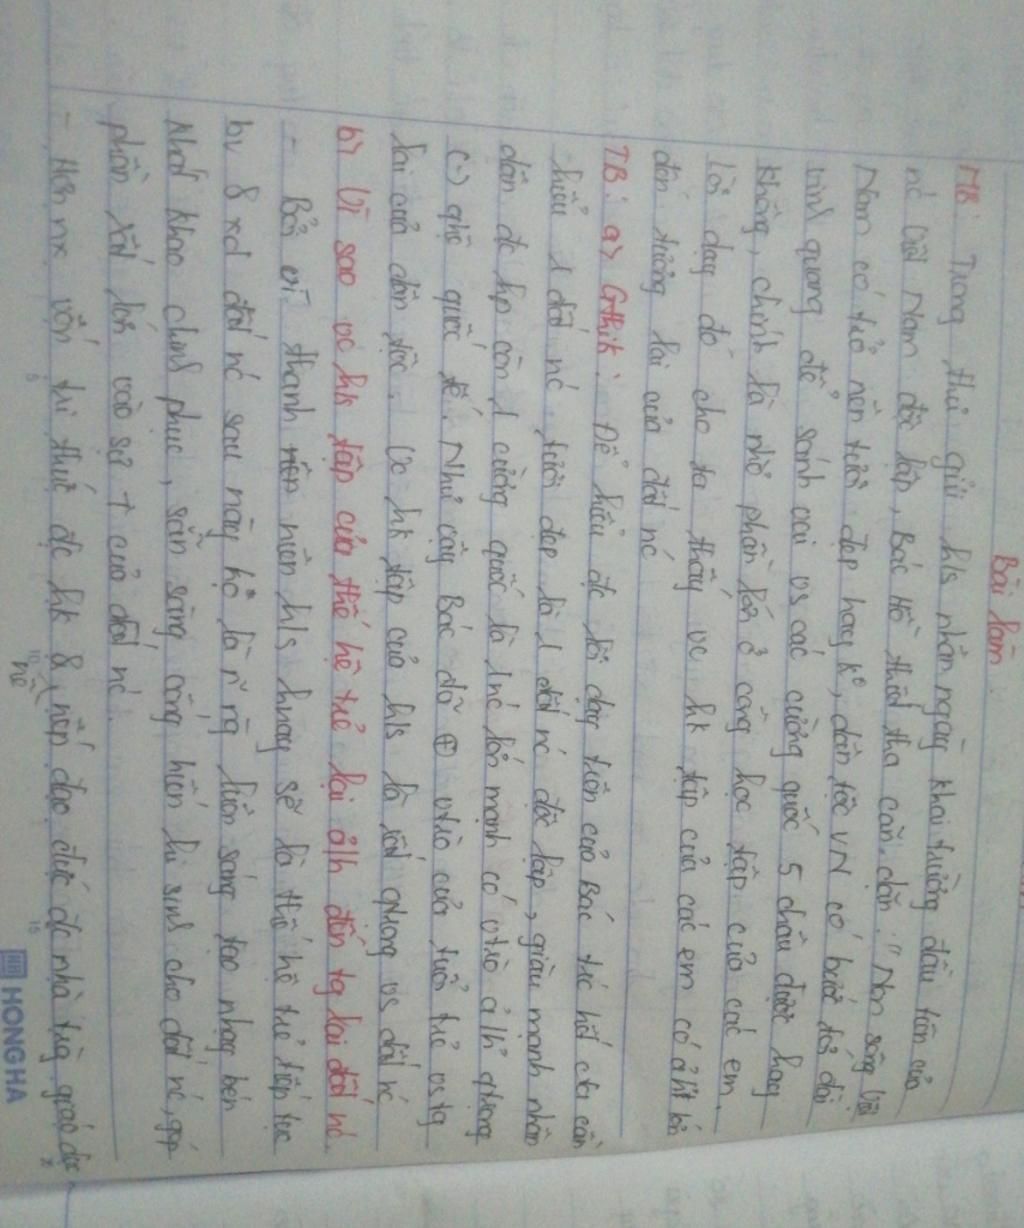 Bài làm
MB: Trong thư gửi hls nhân ngày khai trường đầu tiên của
nc Việt Nam độc lập, Bác Hồ thiết tha căn dặn: "Non sông Việt
Nam có trở nên tươi đẹp hay k°, dân tộc VN có bước tới đài
vinh quang để sánh vai vs các cường quốc 5 châu được hay
không, chính là nhờ phần lớn ở công học tập của các em.
Lời dạy đó cho ta thấy vc ht tập của các em có ahh lớn
đến tương lai của đất nc
TB: a> Gthik: Để hiểu đc lời dạy trên của Bác trc hết cta cần
hiểu 1 đất nc tươi đẹp là 1 đất nc độc lập, giàu mạnh nhân
dân đc
còn 1 cường quốc là 1 nc lớn mạnh có vtrò a/h qtrọng
(-) qhệ quốc tế. Như vậy Bác đã ⊕ vtrò của tuổi trẻ vs tg
lai của dân tộc. Vc ht tập của hls là rất qtrọng vs đất nc
b> Vì sao vc hls tập của thế hệ trẻ lại a/h đến tg lai đất nc.
- Bởi vì thanh niên niên hls hnay sẽ là thế hệ trẻ tiếp tục
bv & xd đất nc sau này họ là n~ ng luôn sáng tạo nhạy bén
khát khao chinh phục, sẵn sàng cống hiến hi sinh cho đất nc, góp
phần rất lớn vào sự + của đất nc.
- Hơn nx vốn tri thức đc ht & nền nếp đạo đức đc nhà trg giáo dục
HONG HA